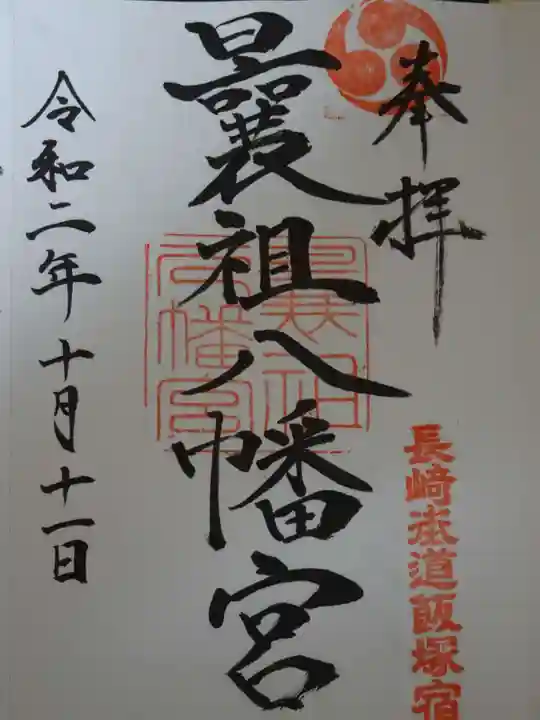 奉拝
長崎街道飯塚宿
曩祖八幡宮
曩祖八幡宮
令和二年十月十一日